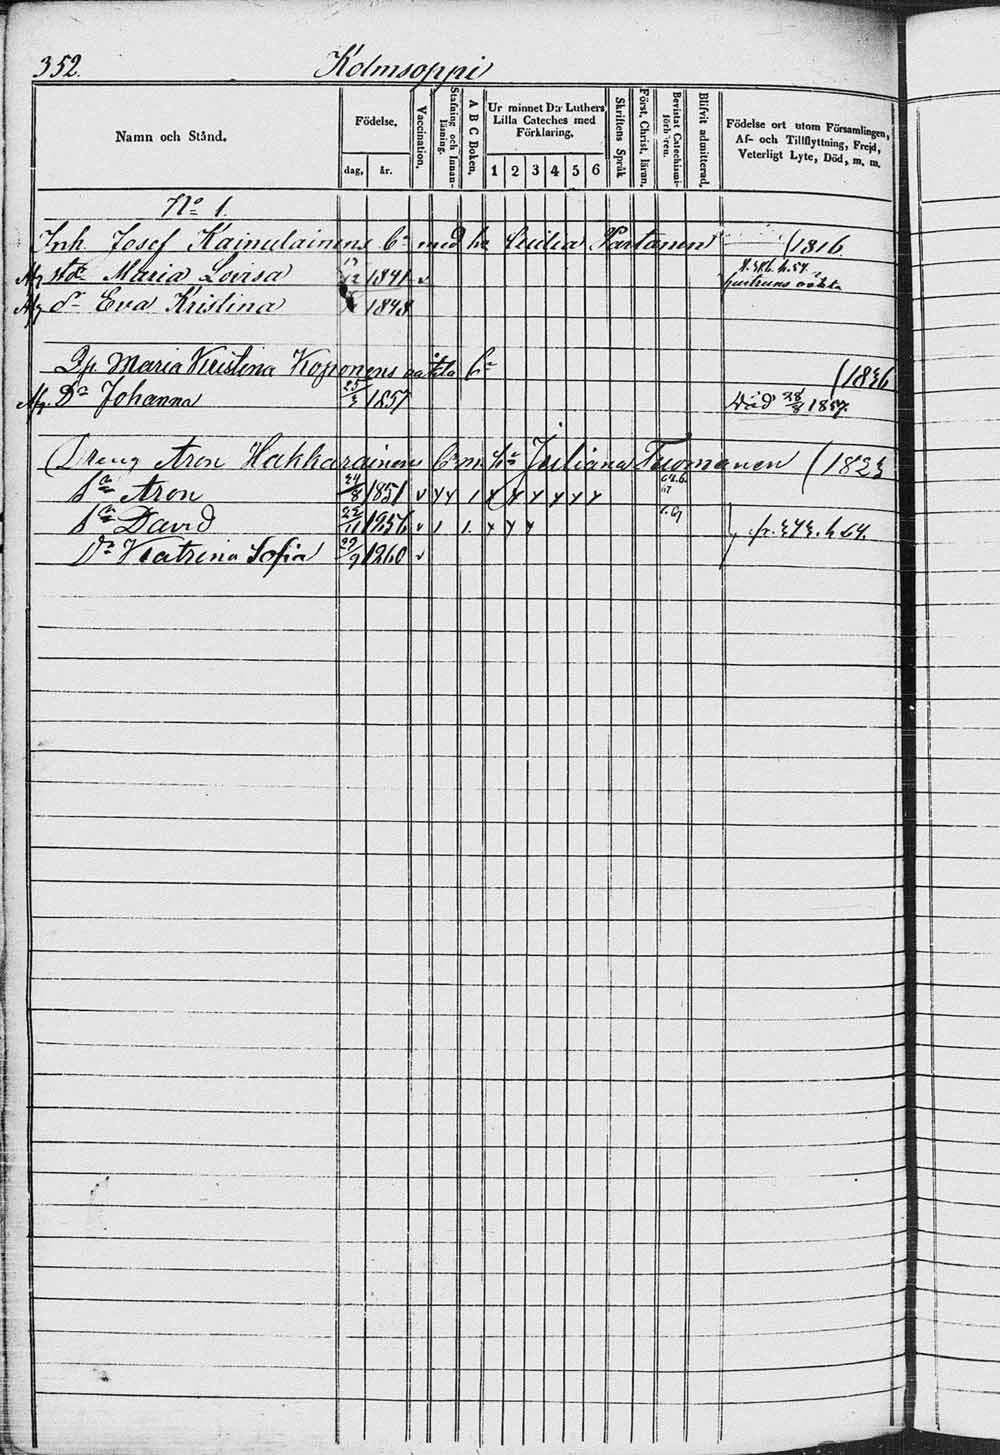 352. Kolmsoppi
Namn och Stånd.
Födelse.
dag. år.
Vaccination.
Stafning och Innan-läsning.
A B C Boken.
Ur minnet D:r Luthers
Lilla Cateches med
Förklaring.
1 2 3 4 5 6
Skriftens Språk
Först. Christ. läran.
Bevistat Catechismi-förhören.
Blifvit admitterad.
Födelse ort utom Församlingen,
Af- och Tillflyttning, Frejd,
Veterligt Lyte, Död, m. m.
No 1.
Inh. Josef Kainulainens Bn med hu Cecilia Partanen (1816
Maria Lovisa 12 1841 v
Dr Eva Kristina 1848
Pp. Maria Kristina Koponens oäkta Bn (1836
Afg. Dr Johanna 25/3 1857 Död 28/8 1857.
Dreng Aron Hakkarainens Bn m. hu Juliana Tuomanen (1823
Sn Aron 24/8 1851 v
Sn David 22/11 1856 v
Dr Katrina Sofia 29/9 1860 v